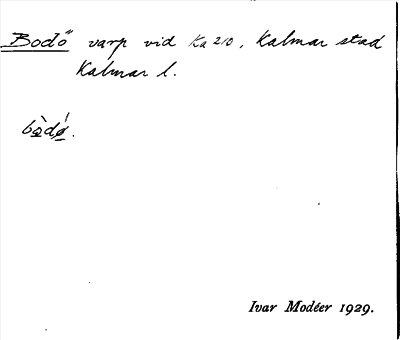 Bodö varp vid Ka 210, Kalmar stad
Kalmar l.
bòdǿ.
Ivar Modéer 1929.